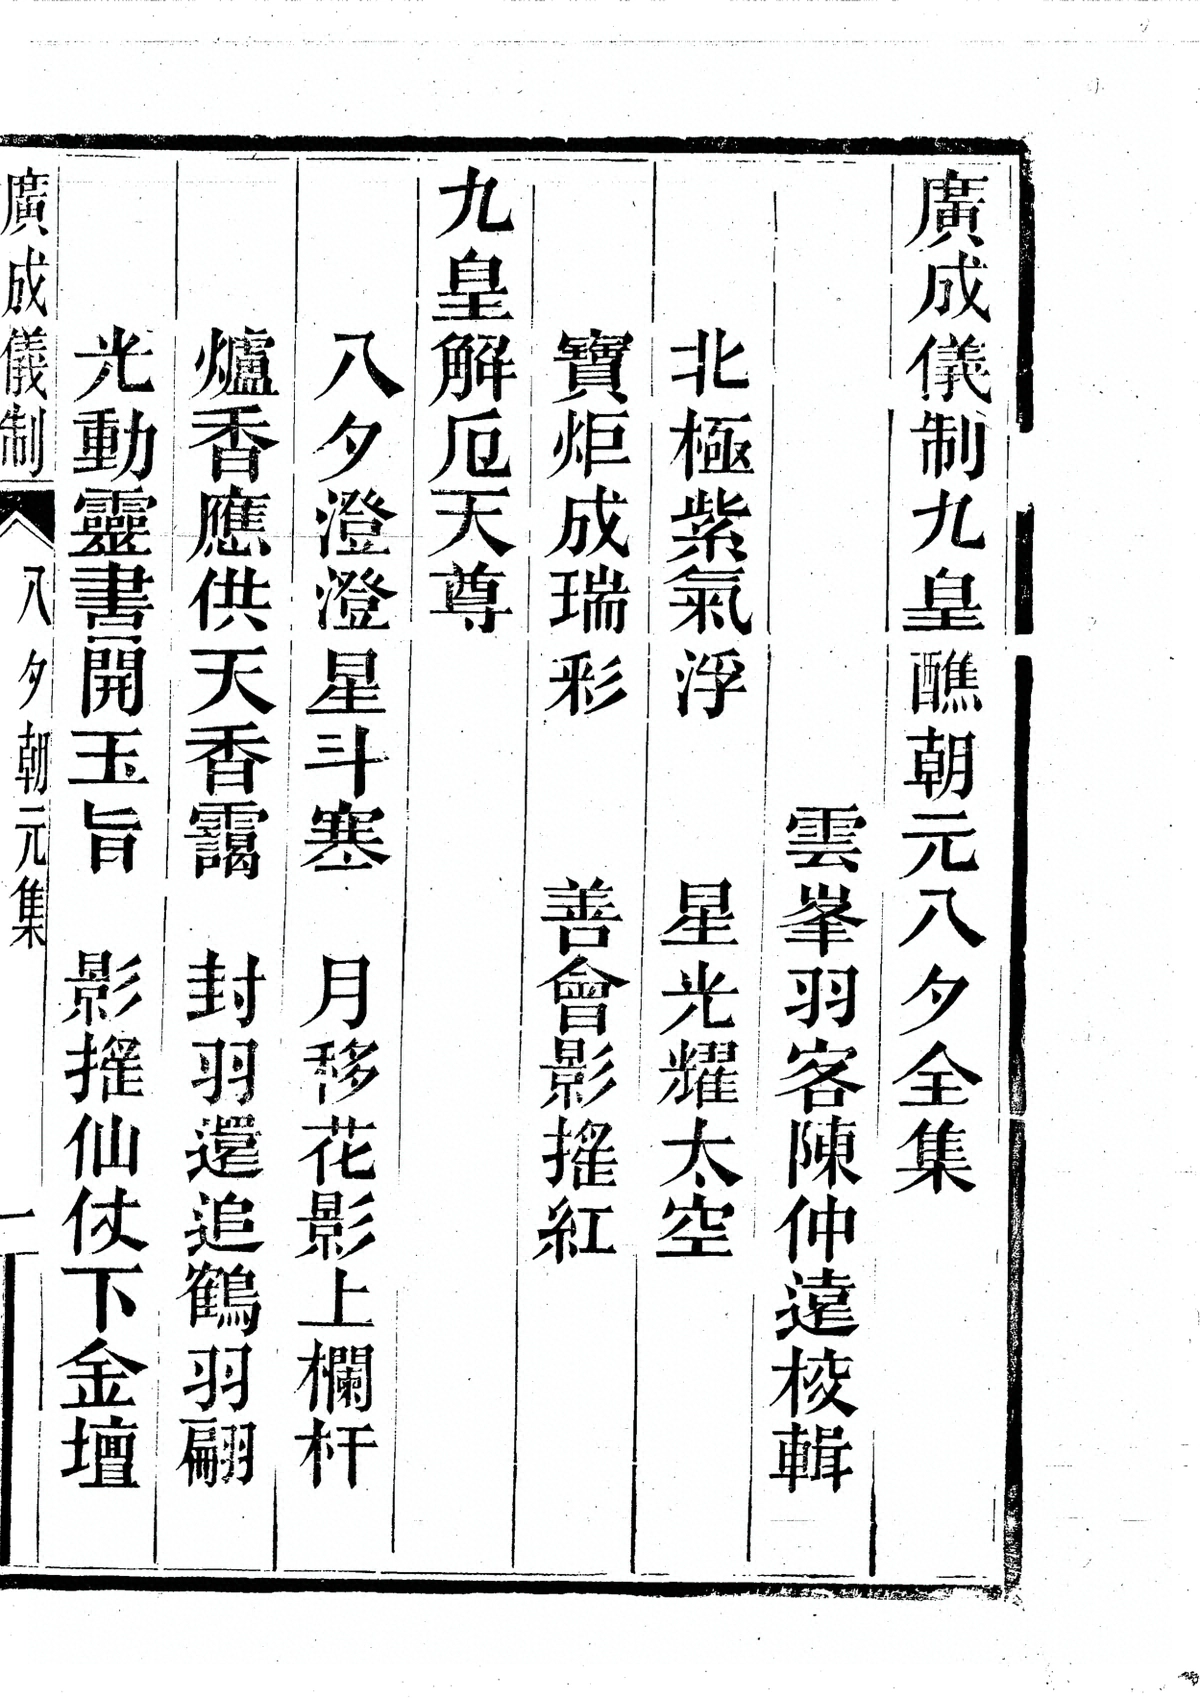 廣成儀制九皇醮朝元八夕全集
雲峯羽客陳仲遠校輯
北極紫氣浮　星光耀太空
寶炬成瑞彩　善會影搖紅
九皇解厄天尊
八夕澄澄星斗塞　月移花影上欄杆
爐香應供天香靄　封羽還追鶴羽翩
光動靈書開玉旨　影搖仙仗下金壇
廣成儀制　八夕朝元集　一